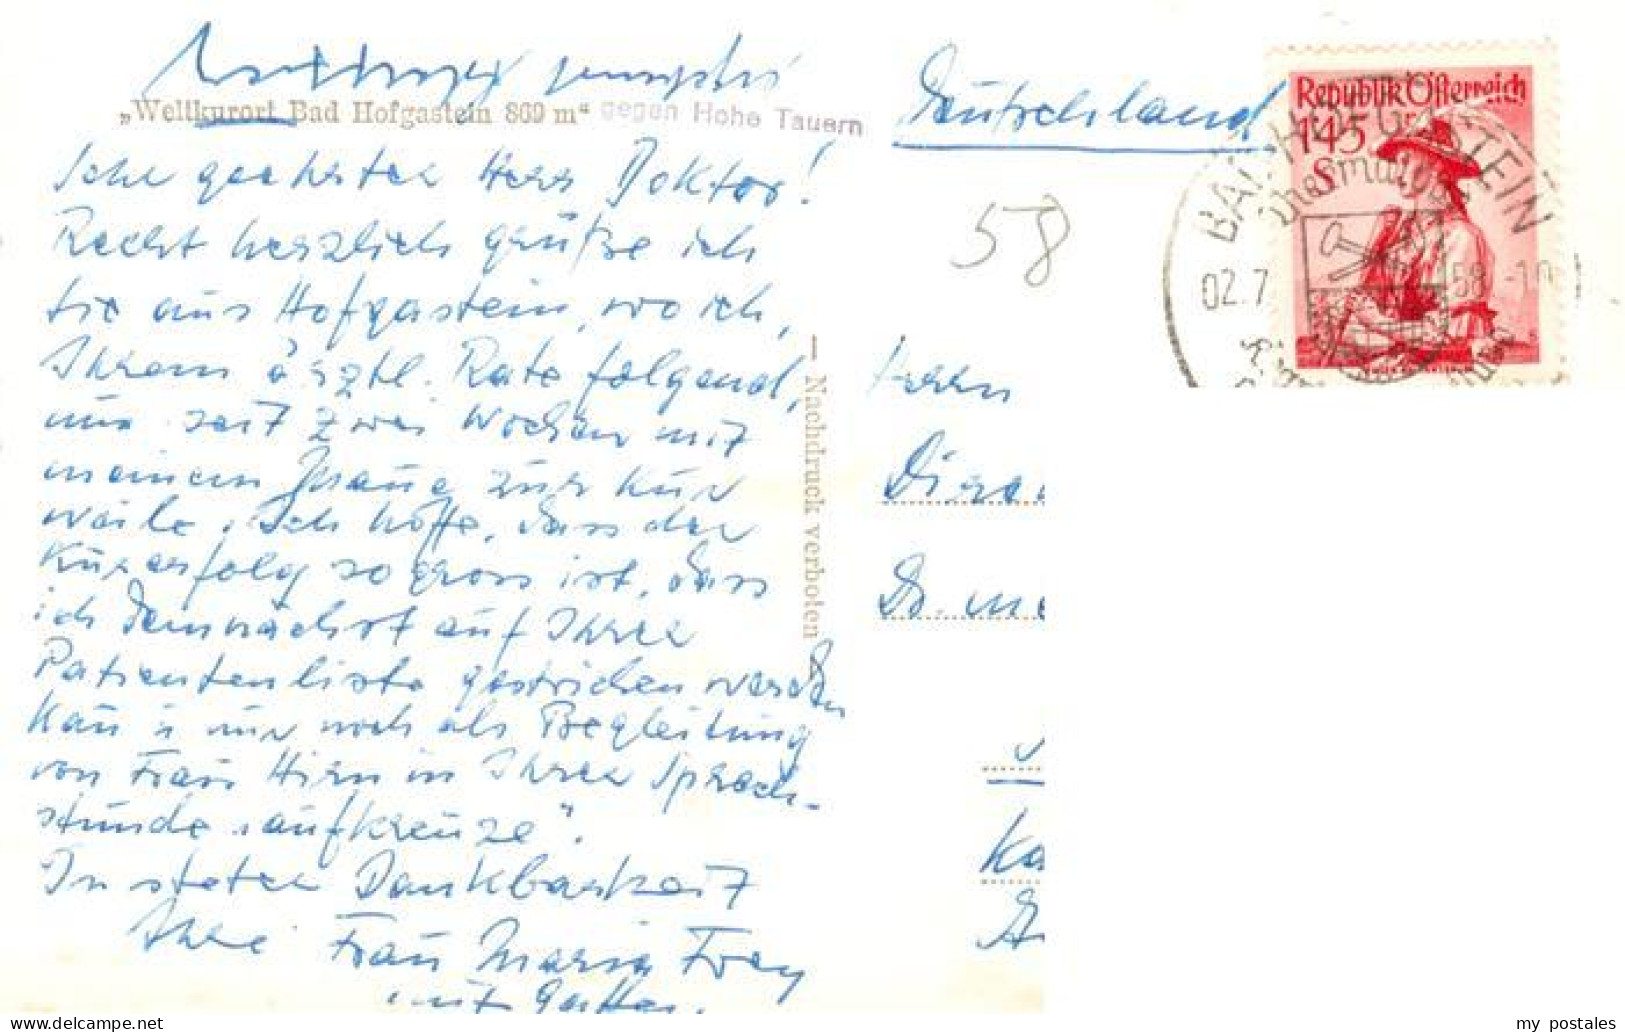 „Weltkurort Bad Hofgastein 869 m“ gegen Hohe Tauern
Sehr geehrter Herr Doktor!
Recht herzlich grüße ich
Sie aus Hofgastein, wo ich,
Ihrem ärztl. Rate folgend,
nun seit zwei Wochen mit
meinem Manne zur Kur
weile. Ich hoffe, dass der
Kurerfolg so gross ist, dass
ich demnächst auf Ihrer
Patientenliste gestrichen werden
kann u nur noch als Begleitung
von Frau Hirn in Ihrer Sprech-
stunde „aufkreuze“.
In steter Dankbarkeit
Ihre Frau Maria Frey
mit Gatten.
— Nachdruck verboten
Deutschland
58
Republik Österreich
145
S
BAD HOFGASTEIN
Thermalba
02.7 58 -10
Herrn
Dr. me
Ka